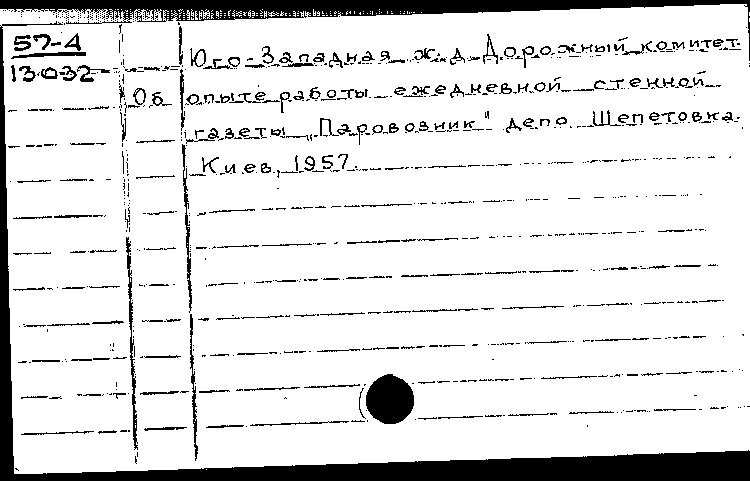 57-4
13032
Юго-Западная ж. д. Дорожный комитет.
Об опыте работы ежедневной стенной
газеты „Паровозник" депо Шепетовка.
Киев, 1957.